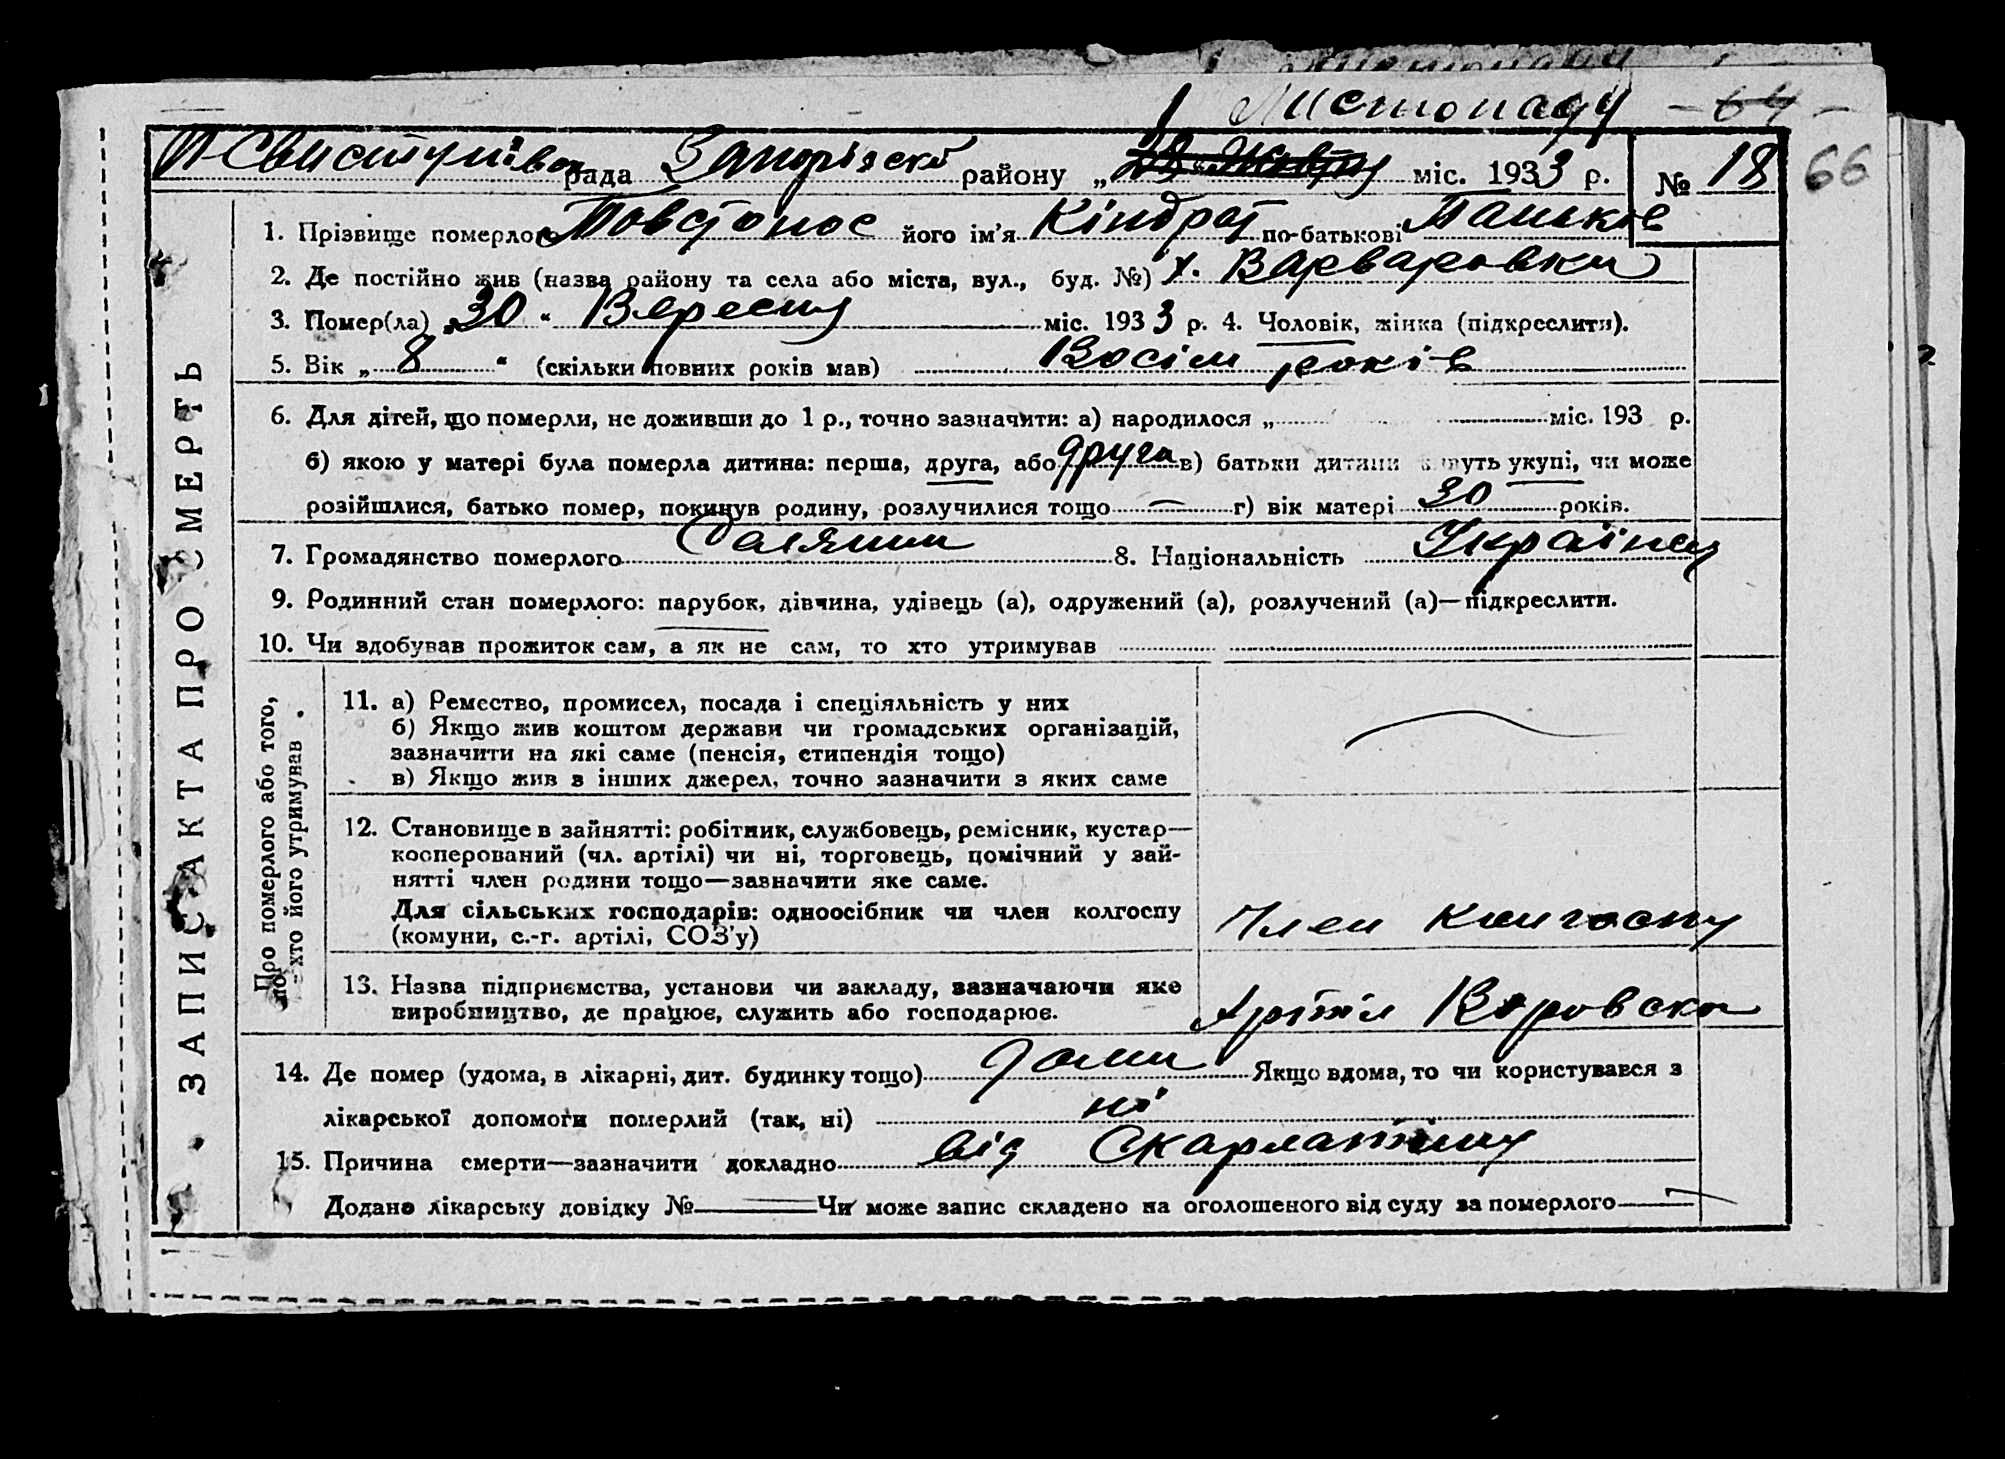 1 Листопаду - 64 -
П-Свистунівськ рада Запорізськ району „ 28 Жовтня міс. 1933 р. № 18 66
1. Прізвище померлого Товстонос його ім'я Кіндрат по-батькові Пашків
2. Де постійно жив (назва району та села або міста, вул., буд. №) х. Варваровки
3. Помер(ла) „30“ Вересня міс. 1933 р. 4. Чоловік, жінка (підкреслити).
5. Вік „ 8 “ (скільки повних років мав) Восім років
6. Для дітей, що померли, не доживши до 1 р., точно зазначити: а) народилося „ міс. 193 р.
б) якою у матері була померла дитина: перша, друга, або друга в) батьки дитини живуть укупі, чи може
розійшлися, батько помер, покинув родину, розлучилися тощо — г) вік матері 30 років.
7. Громадянство померлого 8. Національність Українец
9. Родинний стан померлого: парубок, дівчина, удівець (а), одружений (а), розлучений (а)—підкреслити.
10. Чи здобував прожиток сам, а як не сам, то хто утримував
ЗАПИС АКТА ПРО СМЕРТЬ
Про померлого або того,
хто його утримував
11. а) Ремество, промисел, посада і спеціяльність у них
б) Якщо жив коштом держави чи громадських організацій,
зазначити на які саме (пенсія, стипендія тощо)
в) Якщо жив з інших джерел, точно зазначити з яких саме
12. Становище в зайнятті: робітник, службовець, ремісник, кустар—
кооперований (чл. артілі) чи ні, торговець, помічний у зай-
нятті член родини тощо—зазначити яке саме.
Для сільських господарів: одноосібник чи член колгоспу
(комуни, с.-г. артілі, СОЗ'у) Член колгоспу
13. Назва підприємства, установи чи закладу, зазначаючи яке
виробництво, де працює, служить або господарює. Артіл Воровско
14. Де помер (удома, в лікарні, дит. будинку тощо) дома Якщо вдома, то чи користувався з
лікарської допомоги померлий (так, ні) ні
15. Причина смерти—зазначити докладно від Скарлатини
Додано лікарську довідку № — Чи може запис складено на оголошеного від суду за померлого —